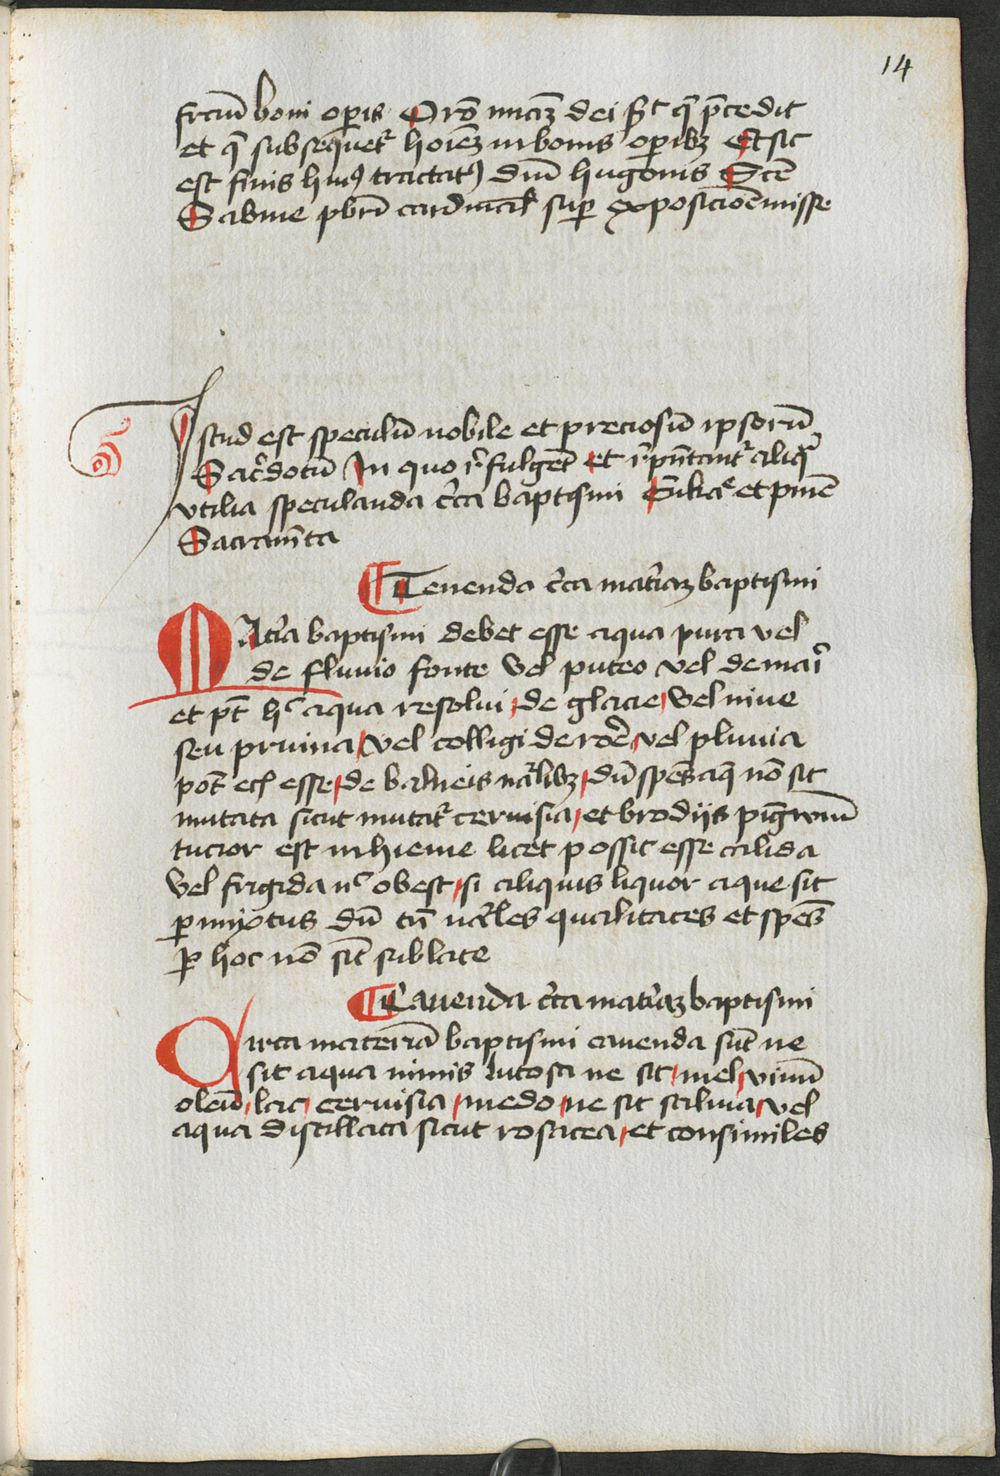 14
frctiũ boni opis Orõ miaꝫ dei sꝫ q̃ p̃cedit
et q̃ subsequet᷑ hoiẽꝫ in bonis opibꝫ Et sic
est finis huiꝰ tractatꝰ dñi hugonis Scẽ
Sabine pbri cardinal̃ sup exposicioẽ misse
Istud est speculũ nobile et preciosũ ipsorũ
Sac̃dotũ In quo r̃fulgẽt et r̃p̃ntant᷑ aliq̃
vtilia speculanda c̃ca baptismi Eukar̃ et pnie
Sacram̃ta
Tenenda c̃ca mat̃iaꝫ baptismi
Mat̃ia baptismi debet esse aqua pura vel
de fluuio fonte vel puteo vel de mari
et pt̃ hᷤ aqua resolui de glacie vel niue
seu pruina vel colligi de rore vel pluuia
pot̃ eciã esse de balneis nãlibꝫ dũ spẽs aq̃ nõ sit
mutata sicut mutat᷑ ceruisia et brodijs pigwiũ
tucior est in hieme licet possit esse calida
vel frigida nᶜ obest si aliquis liquor aque sit
pmixtus dũ tñ nãles qualitates et spẽs
p hoc nõ sĩt sublate
Cauenda c̃ca mat̃iaꝫ baptismi
Circa materiã baptismi cauenda sũt ne
sit aqua nimis lutosa ne sit mel vinũ
oleũ lac ceruisia medo ne sit saliua vel
aqua distillata sicut rosacea et consimiles